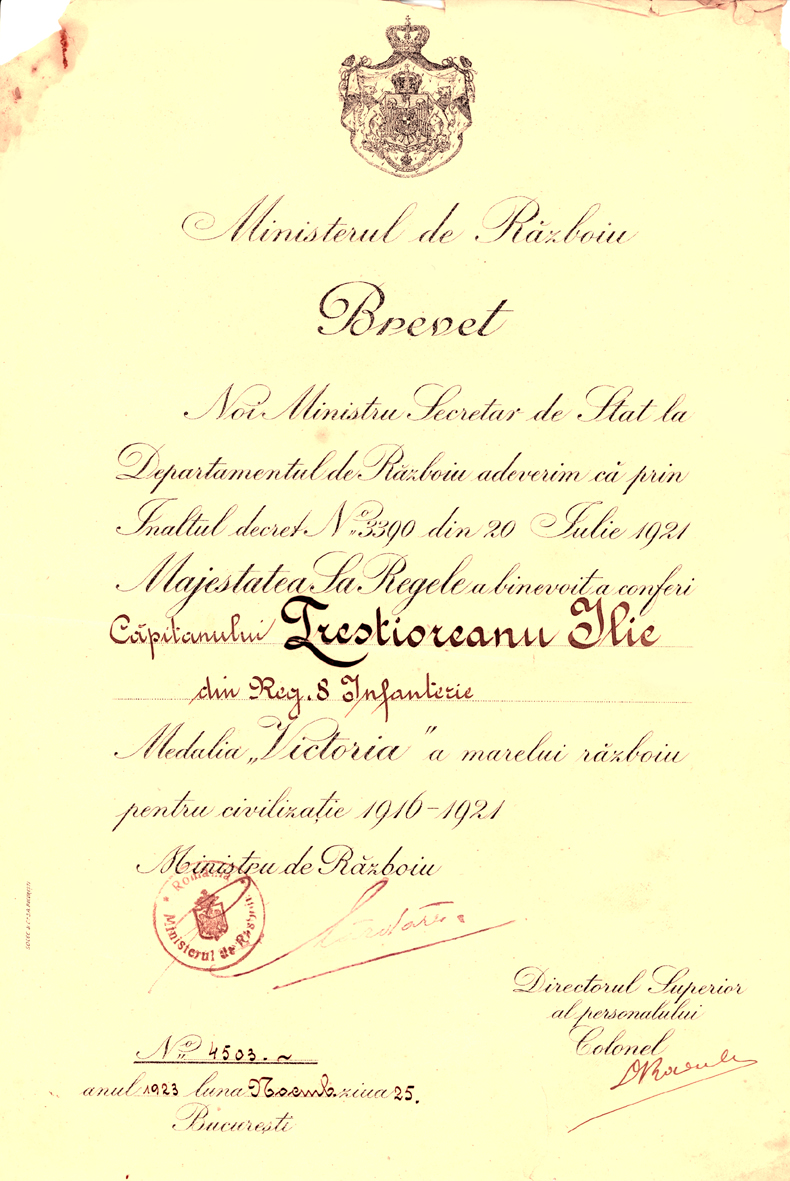 Ministerul de Războiu
Brevet
Noi Ministru Secretar de Stat la
Departamentul de Războiu adeverim că prin
Inaltul decret No 3390 din 20 Iulie 1921
Majestatea Sa Regele a binevoit a conferi
Căpitanului Trestioreanu Ilie
din Reg. 8 Infanterie
Medalia „Victoria" a marelui războiu
pentru civilizație 1916-1921
Ministru de Războiu
România
Ministerul de Resboiu
Directorul Superior
al personalului
Colonel
No 4503. ~
anul 1923 luna Noemb. ziua 25.
București